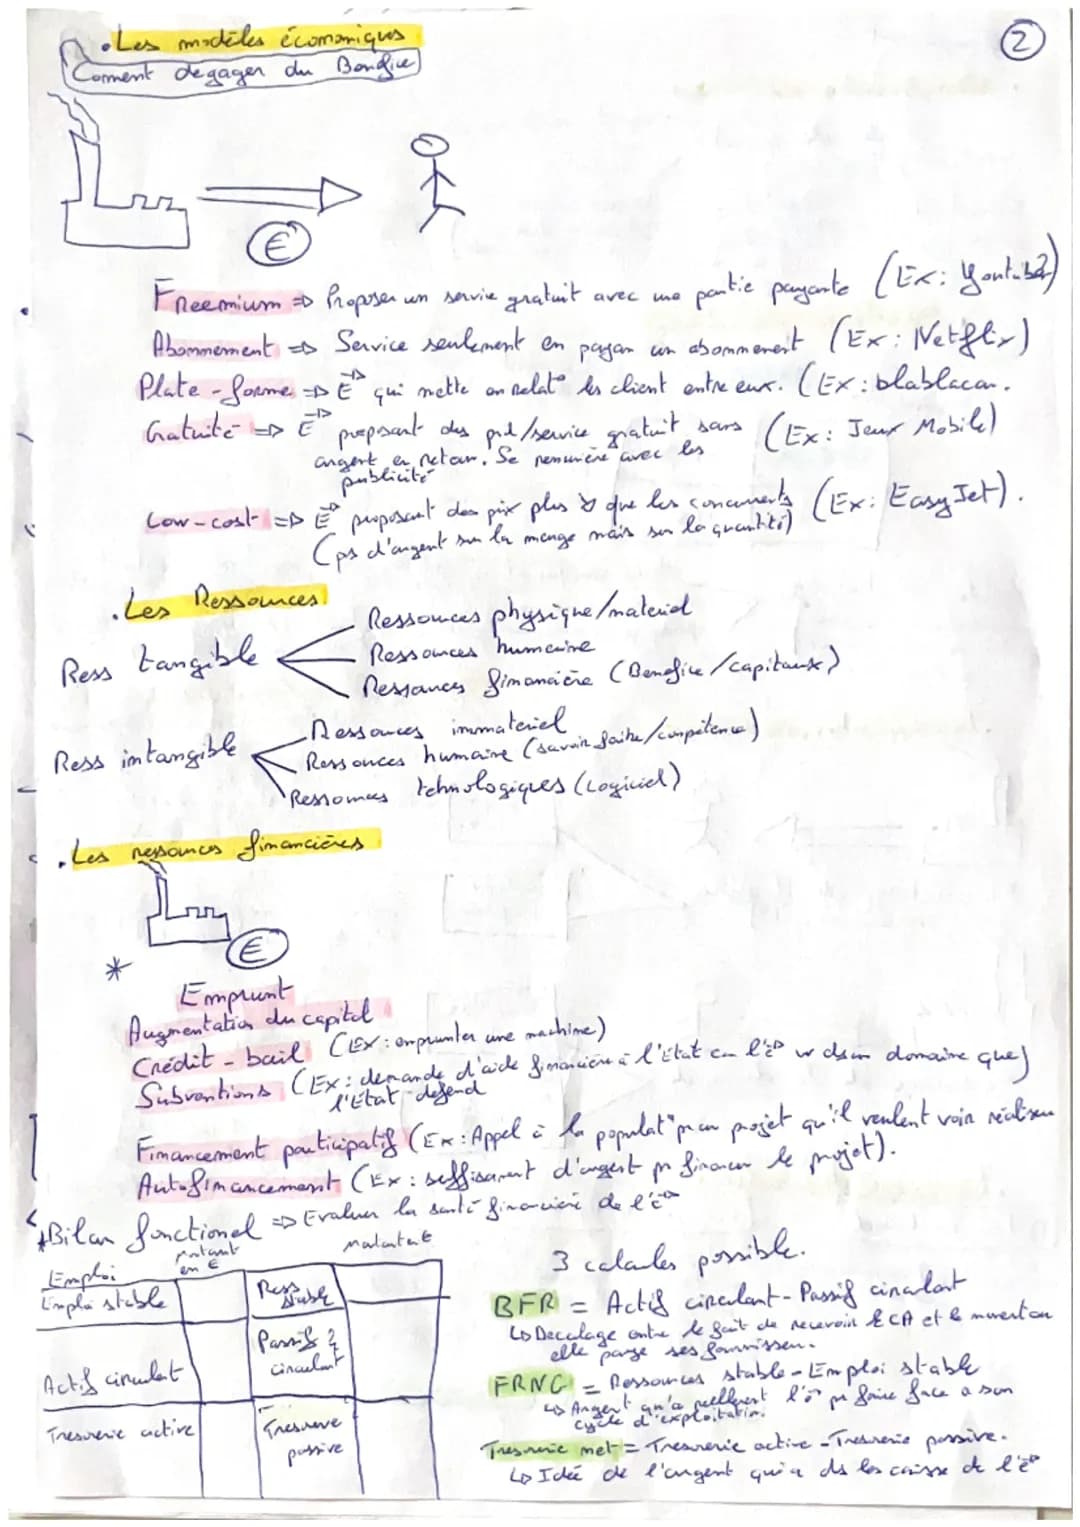 2
• Les modèles économiques
Comment degager du Benefice
€
Freemium => Proposer un servie gratuit avec une partie payante (Ex: Youtube)
Abonnement => Service seulement en payan un abonnement (Ex: Netflix)
Plate-forme => E^se qui mette en relat° les client entre eux. (Ex: blablacar.
Gratuité => E^se proposant des prd/service gratuit sans (Ex: Jeux Mobile)
argent en retour. Se remunère avec les
publicité
Low-cost => E^se proposant des pix plus ↘ que les concurrents (Ex: EasyJet).
(ps d'argent sur la marge mais sur la quantité)
• Les Ressources
Ress tangible
Ressources physique/materiel
Ressources humaine
Ressources financière (Benefice/capitaux)
Ress intangible
Ressources immateriel
Ressources humaine (savoir faire/compétence)
Ressources tehnologiques (Logiciel)
• Les ressources financières
€
*
Emprunt
Augmentation du capital
Crédit-bail (Ex: emprunter une machine)
Subventions (Ex: demande d'aide financière à l'Etat car l'e^se domaine que)
l'Etat defend
Financement participatif (Ex: Appel à la populat° pr un projet qu'il veulent voir réaliser
Autofinancement (Ex: suffisament d'argent pr financer le projet).
*Bilan fonctionel => Evaluer la santé financière de l'e^se
Emploi
montant
en €
Emploi stable
Ress
stable
Actif circulant
Passif
circulant
Tresorerie active
Tresorerie
passive
3 calcules possible.
BFR = Actif circulant - Passif circulant
↳ Decalage entre le fait de recevoir le CA et le moment ou
elle paye ses fournisseur.
FRNG = Ressources stable - Emploi stable
↳ Argent qu'a reellement l'e^se pr faire face a son
cycle d'exploitation.
Tresorerie net = Tresorerie active - Tresorerie passive.
↳ Idée de l'argent qui a ds les caisse de l'e^se